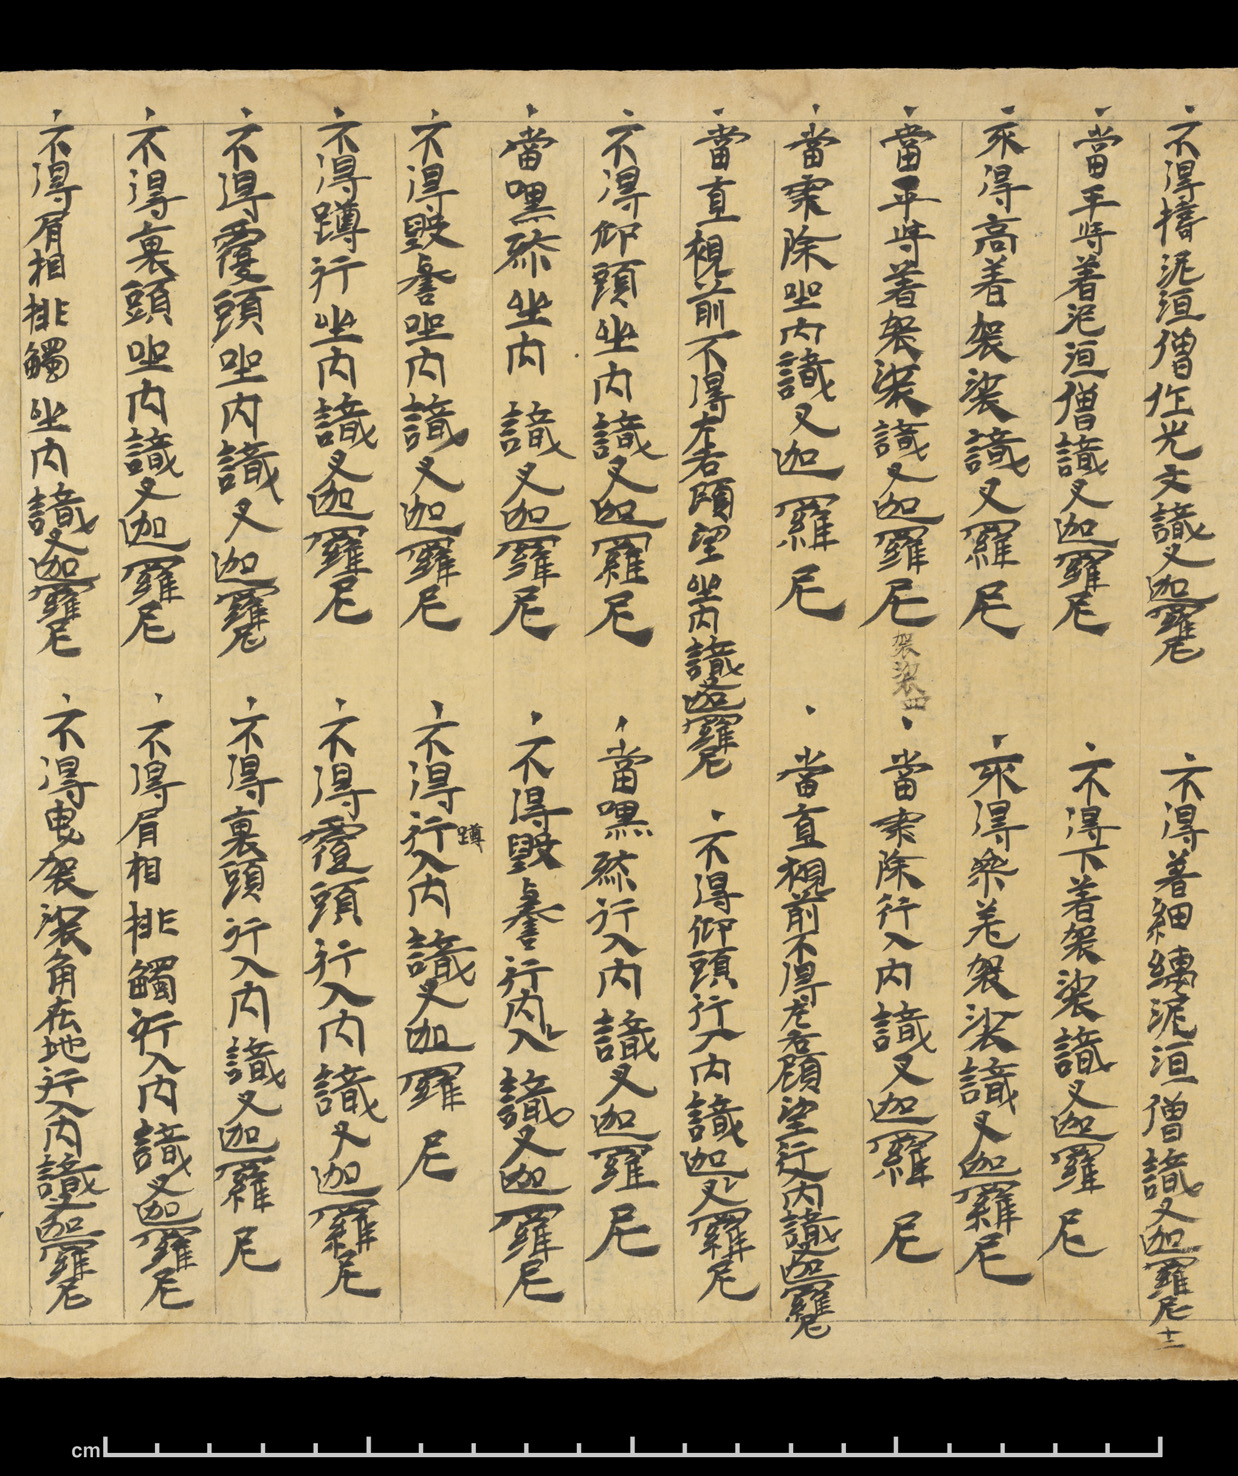 不得擣泥洹僧作光文識叉迦羅尼　不得著細縷泥洹僧識叉迦羅尼十二
當平㝵着泥洹僧識叉迦羅尼　不得下着袈裟識叉迦羅尼
不得高着袈裟識叉羅尼　不得參差袈裟識叉迦羅尼
當平㝵着袈裟識叉迦羅尼袈裟四　當庠除行入内識叉迦羅尼
當庠除坐内識叉迦羅尼　當直視前不得左右顧望行入内識叉迦羅尼
當直視前不得左右顧望坐内識叉迦羅尼　不得仰頭行入内識迦叉羅尼
不得仰頭坐内識叉迦羅尼　當嘿然行入内識叉迦羅尼
當嘿然坐内識叉迦羅尼　不得毀訾行内入識叉迦羅尼
不得毀訾坐内識叉迦羅尼　不得蹲行入内識叉迦羅尼
不得蹲行坐内識叉迦羅尼　不得覆頭行入内識叉迦羅尼
不得覆頭坐内識叉迦羅尼　不得裹頭行入内識叉迦羅尼
不得裹頭坐内識叉迦羅尼　不得肩相排觸行入内識叉迦羅尼
不得肩相排觸坐内識叉迦羅尼　不得曳袈裟角在地行入内識叉迦羅尼